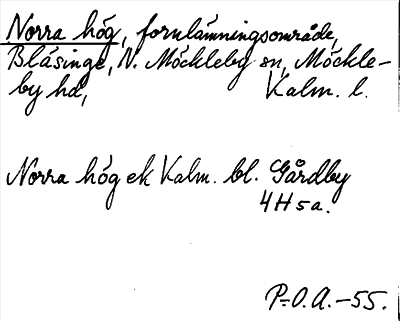 Norra hög, fornlämningsområde,
Bläsinge, N. Möckleby sn, Möckle-
by hd, Kalm. l.
Norra hög ek Kalm. bl. Gårdby
4H5a.
P-O.A.-55.